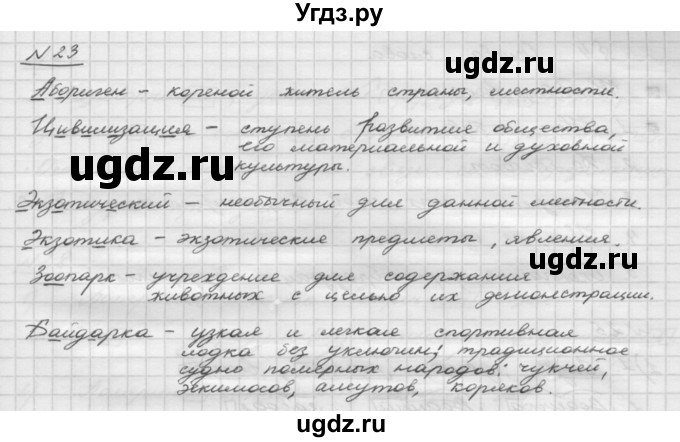 Угдз.ру
N 23
Абориген – кореной житель страны, местности.
Цивилизация – ступень развитие общества,
его материальной и духовной
культуры.
Экзотический – необычный для данной местности.
Экзотика – экзотические предметы, явления.
Зоопарк – учреждение для содержания
животных с целью их демонстрации.
Байдарка – узкая и легкая спортивная
лодка без уключин; традиционное
судно полярных народов: чукчей,
эскимосов, алеутов, коряков.
ugdz.ru
ugdz.ru
ugdz.ru
ugdz.ru
ugdz.ru
ugdz.ru
ugdz.ru
ugdz.ru